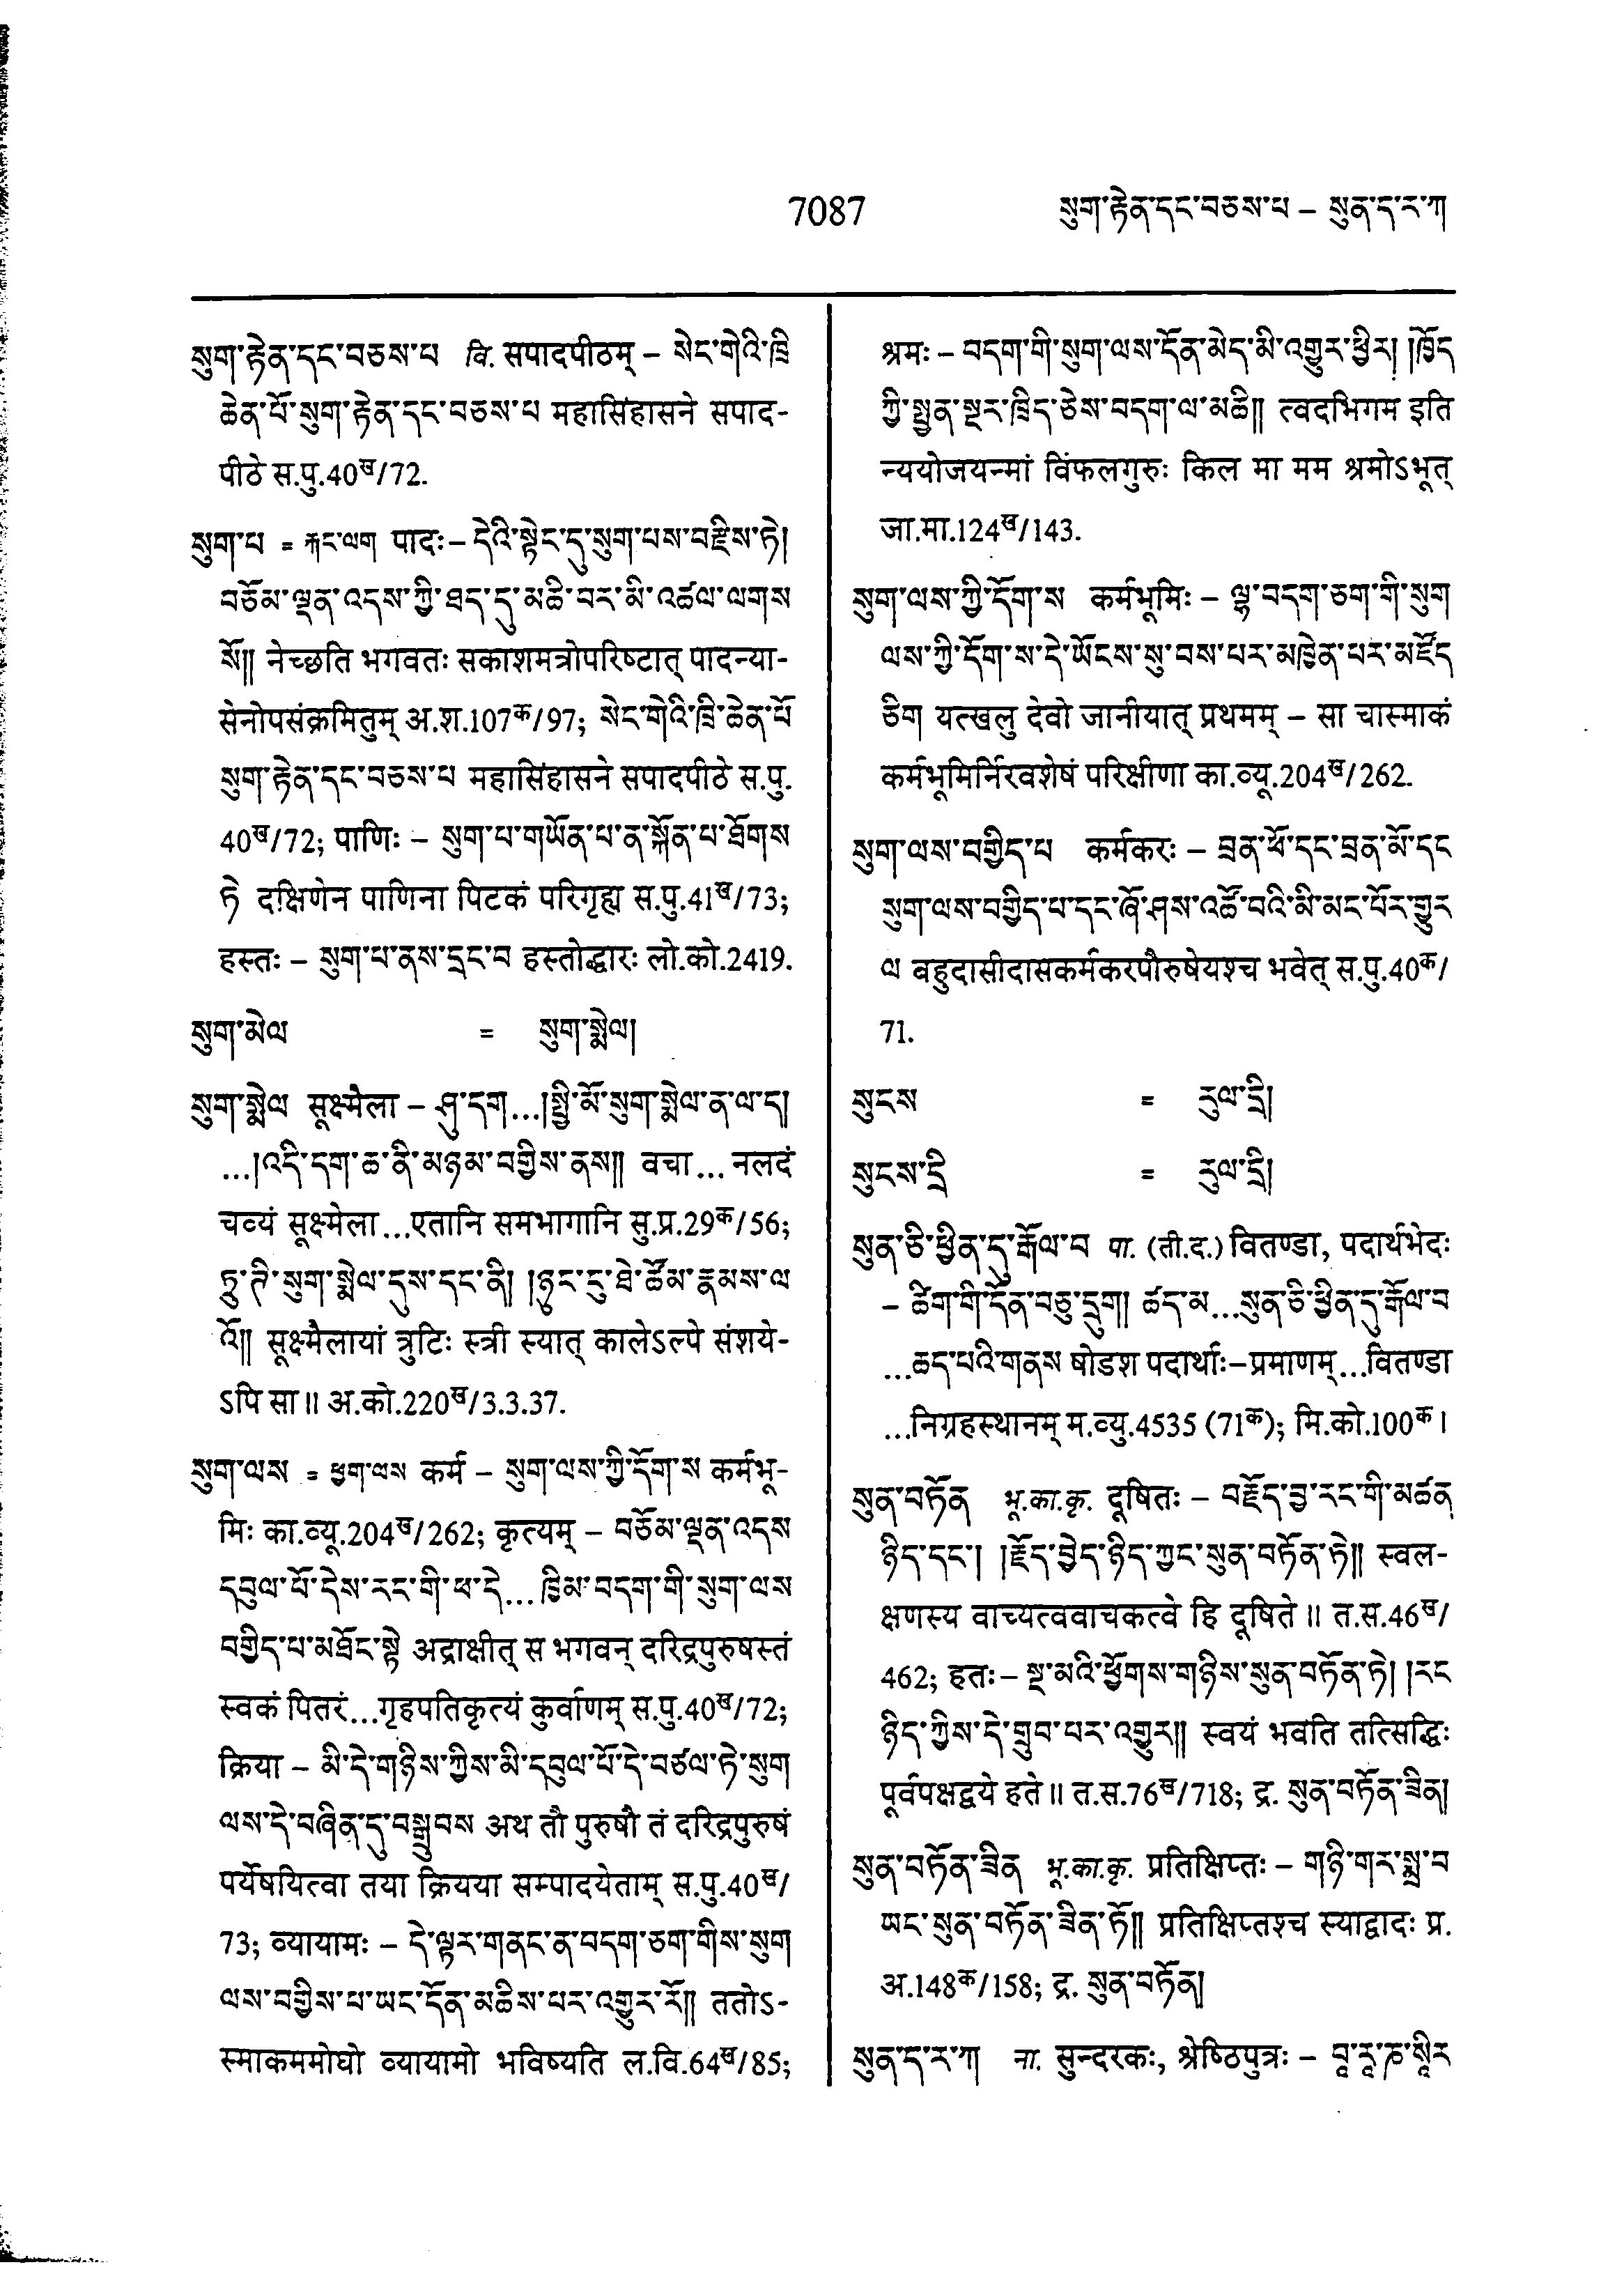 7087
སུག་རྟེན་དང་བཅས་པ – སུན་ད་ར་ཀ
སུག་རྟེན་དང་བཅས་པ वि. सपादपीठम् – སེང་གེའི་ཁྲི
ཆེན་པོ་སུག་རྟེན་དང་བཅས་པ महासिंहासने सपाद-
पीठे स.पु.40ख/72.
སུག་པ = རྐང་ལག पादः– དེའི་སྟེང་དུ་སུག་པས་བརྫིས་ཏེ།
བཅོམ་ལྡན་འདས་ཀྱི་ཐད་དུ་མཆི་བར་མི་འཚལ་ལགས
སོ།། नेच्छति भगवतः सकाशमत्रोपरिष्टात् पादन्या-
सेनोपसंक्रमितुम् अ.श.107क/97; སེང་གེའི་ཁྲི་ཆེན་པོ
སུག་རྟེན་དང་བཅས་པ महासिंहासने सपादपीठे स.पु.
40ख/72; पाणिः – སུག་པ་གཡོན་པ་ན་སྐོན་པ་ཐོགས
ཏེ दक्षिणेन पाणिना पिटकं परिगृह्य स.पु.41ख/73;
हस्तः – སུག་པ་ནས་དྲང་བ हस्तोद्धारः लो.को.2419.
སུག་མེལ = སུག་སྨེལ།
སུག་སྨེལ सूक्ष्मैला – ཤུ་དག...།སྤྱི་མོ་སུག་སྨེལ་ན་ལ་ད།
...།འདི་དག་ཆ་ནི་མཉམ་བགྱིས་ནས།། वचा... नलदं
चव्यं सूक्ष्मेला...एतानि समभागानि सु.प्र.29क/56;
ཏྲུ་ཊི་སུག་སྨེལ་དུས་དང་ནི། །ཉུང་ངུ་ཐེ་ཚོམ་རྣམས་ལ
འོ།། सूक्ष्मैलायां त्रुटिः स्त्री स्यात् कालेऽल्पे संशये-
ऽपि सा॥ अ.को.220ख/3.3.37.
སུག་ལས = ཕྱག་ལས कर्म – སུག་ལས་ཀྱི་དོག་ས कर्मभू-
मिः का.व्यू.204ख/262; कृत्यम् – བཅོམ་ལྡན་འདས
དབུལ་པོ་དེས་རང་གི་ཕ་དེ...ཁྱིམ་བདག་གི་སུག་ལས
བགྱིད་པ་མཐོང་སྟེ अद्राक्षीत् स भगवन् दरिद्रपुरुषस्तं
स्वकं पितरं...गृहपतिकृत्यं कुर्वाणम् स.पु.40ख/72;
क्रिया – མི་དེ་གཉིས་ཀྱིས་མི་དབུལ་པོ་དེ་བཙལ་ཏེ་སུག
ལས་དེ་བཞིན་དུ་བསྒྲུབས अथ तौ पुरुषौ तं दरिद्रपुरुषं
पर्येषयित्वा तया क्रियया सम्पादयेताम् स.पु.40ख/
73; व्यायामः – དེ་ལྟར་གནང་ན་བདག་ཅག་གིས་སུག
ལས་བགྱིས་པ་ཡང་དོན་མཆིས་པར་འགྱུར་རོ།། ततोऽ-
स्माकममोघो व्यायामो भविष्यति ल.वि.64ख/85;
श्रमः – བདག་གི་སུག་ལས་དོན་མེད་མི་འགྱུར་ཕྱིར། །ཁྱོད
ཀྱི་སྤྱན་སྔར་ཁྲིད་ཅེས་བདག་ལ་མཆི།། त्वदभिगम इति
न्ययोजयन्मां विफलगुरुः किल मा मम श्रमोऽभूत्
जा.मा.124ख/143.
སུག་ལས་ཀྱི་དོག་ས कर्मभूमिः – ལྷ་བདག་ཅག་གི་སུག
ལས་ཀྱི་དོག་ས་དེ་ཡོངས་སུ་བས་པར་མཁྱེན་པར་མཛོད
ཅིག यत्खलु देवो जानीयात् प्रथमम् – सा चास्माकं
कर्मभूमिर्निरवशेषं परिक्षीणा का.व्यू.204ख/262.
སུག་ལས་བགྱིད་པ कर्मकरः – བྲན་ཕོ་དང་བྲན་མོ་དང
སུག་ལས་བགྱིད་པ་དང་ཞོ་ཤས་འཚོ་བའི་མི་མང་པོར་གྱུར
ལ बहुदासीदासकर्मकरपौरुषेयश्च भवेत् स.पु.40क/
71.
སུངས = རུལ་དྲི།
སུངས་དྲི = རུལ་དྲི།
སུན་ཅི་ཕྱིན་དུ་རྒོལ་བ पा. (ती.द.) वितण्डा, पदार्थभेदः
– ཚིག་གི་དོན་བཅུ་དྲུག། ཚད་མ...སུན་ཅི་ཕྱིན་དུ་རྒོལ་བ
...ཆད་པའི་གནས षोडश पदार्थाः–प्रमाणम्...वितण्डा
...निग्रहस्थानम् म.व्यु.4535 (71क); मि.को.100क।
སུན་བཏོན भू.का.कृ. दूषितः – བརྗོད་བྱ་རང་གི་མཚན
ཉིད་དང་། །རྗོད་བྱེད་ཉིད་ཀྱང་སུན་བཏོན་ཏེ།། स्वल-
क्षणस्य वाच्यत्ववाचकत्वे हि दूषिते॥ त.स.46ख/
462; हतः – སྔ་མའི་ཕྱོགས་གཉིས་སུན་བཏོན་ཏེ། །རང
ཉིད་ཀྱིས་དེ་གྲུབ་པར་འགྱུར།། स्वयं भवति तत्सिद्धिः
पूर्वपक्षद्वये हते॥ त.स.76ख/718; द्र. སུན་བཏོན་ཟིན།
སུན་བཏོན་ཟིན भू.का.कृ. प्रतिक्षिप्तः – གཉི་གར་སྨྲ་བ
ཡང་སུན་བཏོན་ཟིན་ཏོ།། प्रतिक्षिप्तश्च स्याद्वादः प्र.
अ.148क/158; द्र. སུན་བཏོན།
སུན་ད་ར་ཀ ना. सुन्दरकः, श्रेष्ठिपुत्रः –